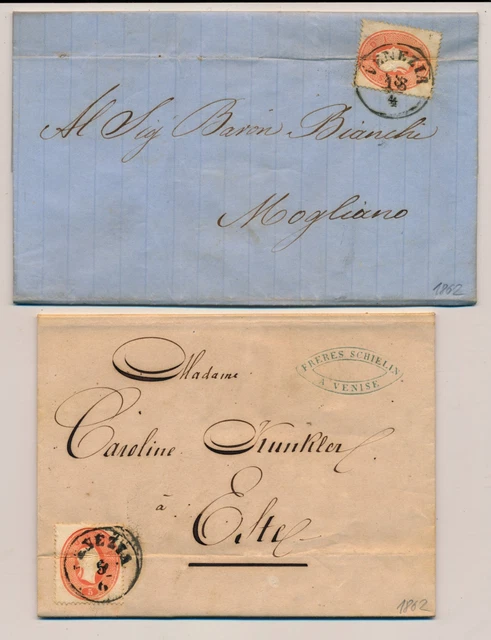 VENEZIA
18
4
Al Sig Baron Bianchi
Mogliano
1862
FRERES SCHIELIN
A VENISE
Madame
Caroline Kunkler
à
Este
VENEZIA
6
5
1862